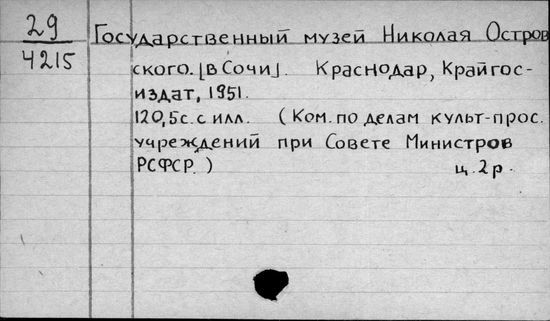 29
4215
Государственный музей Николая Остров
ского. [в Сочи]. Краснодар, Крайгос-
издат, 1951.
120,5с. с илл. (Ком. по делам культ-прос.
учреждений при Совете Министров
РСФСР.) ц. 2 р.